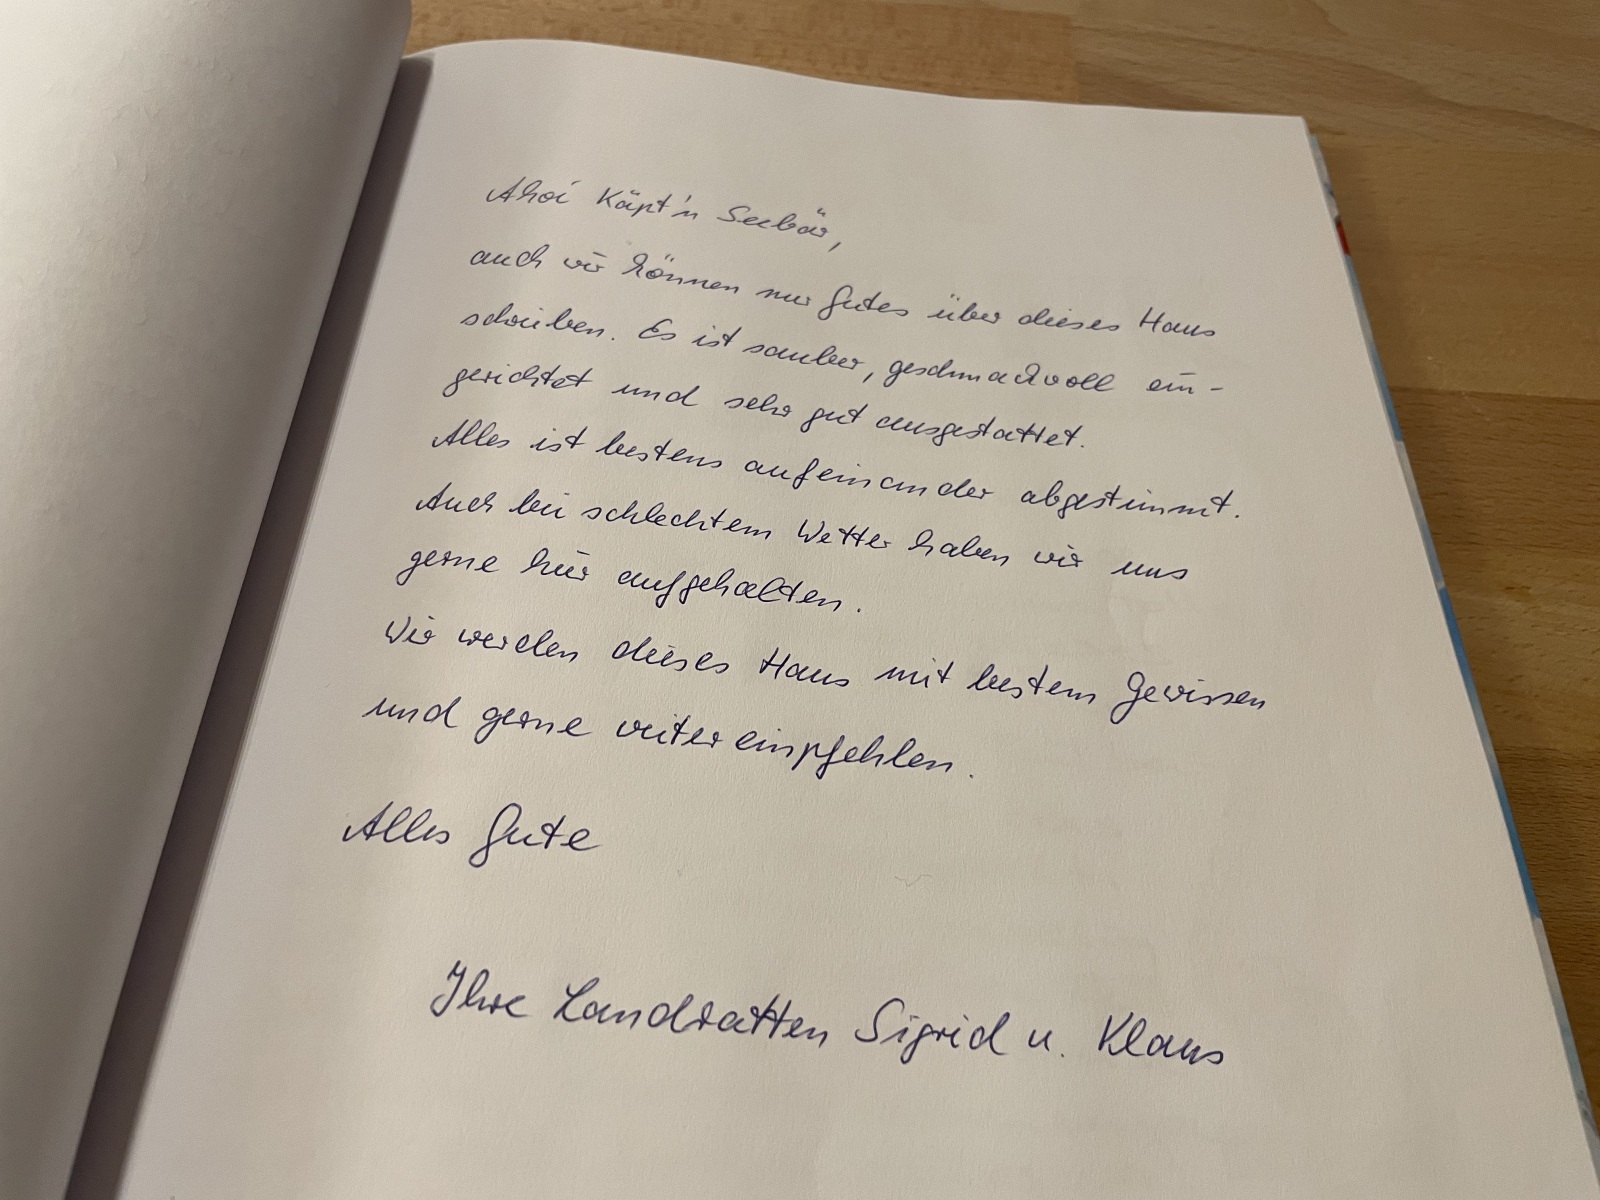 Ahoi Käpt'n Seebär,
auch wir können nur Gutes über dieses Haus
schreiben. Es ist sauber, geschmackvoll ein-
gerichtet und sehr gut ausgestattet.
Alles ist bestens aufeinander abgestimmt.
Auch bei schlechtem Wetter haben wir uns
gerne hier aufgehalten.
Wir werden dieses Haus mit bestem Gewissen
und gerne weiterempfehlen.
Alles Gute
Ihre Landratten Sigrid u. Klaus